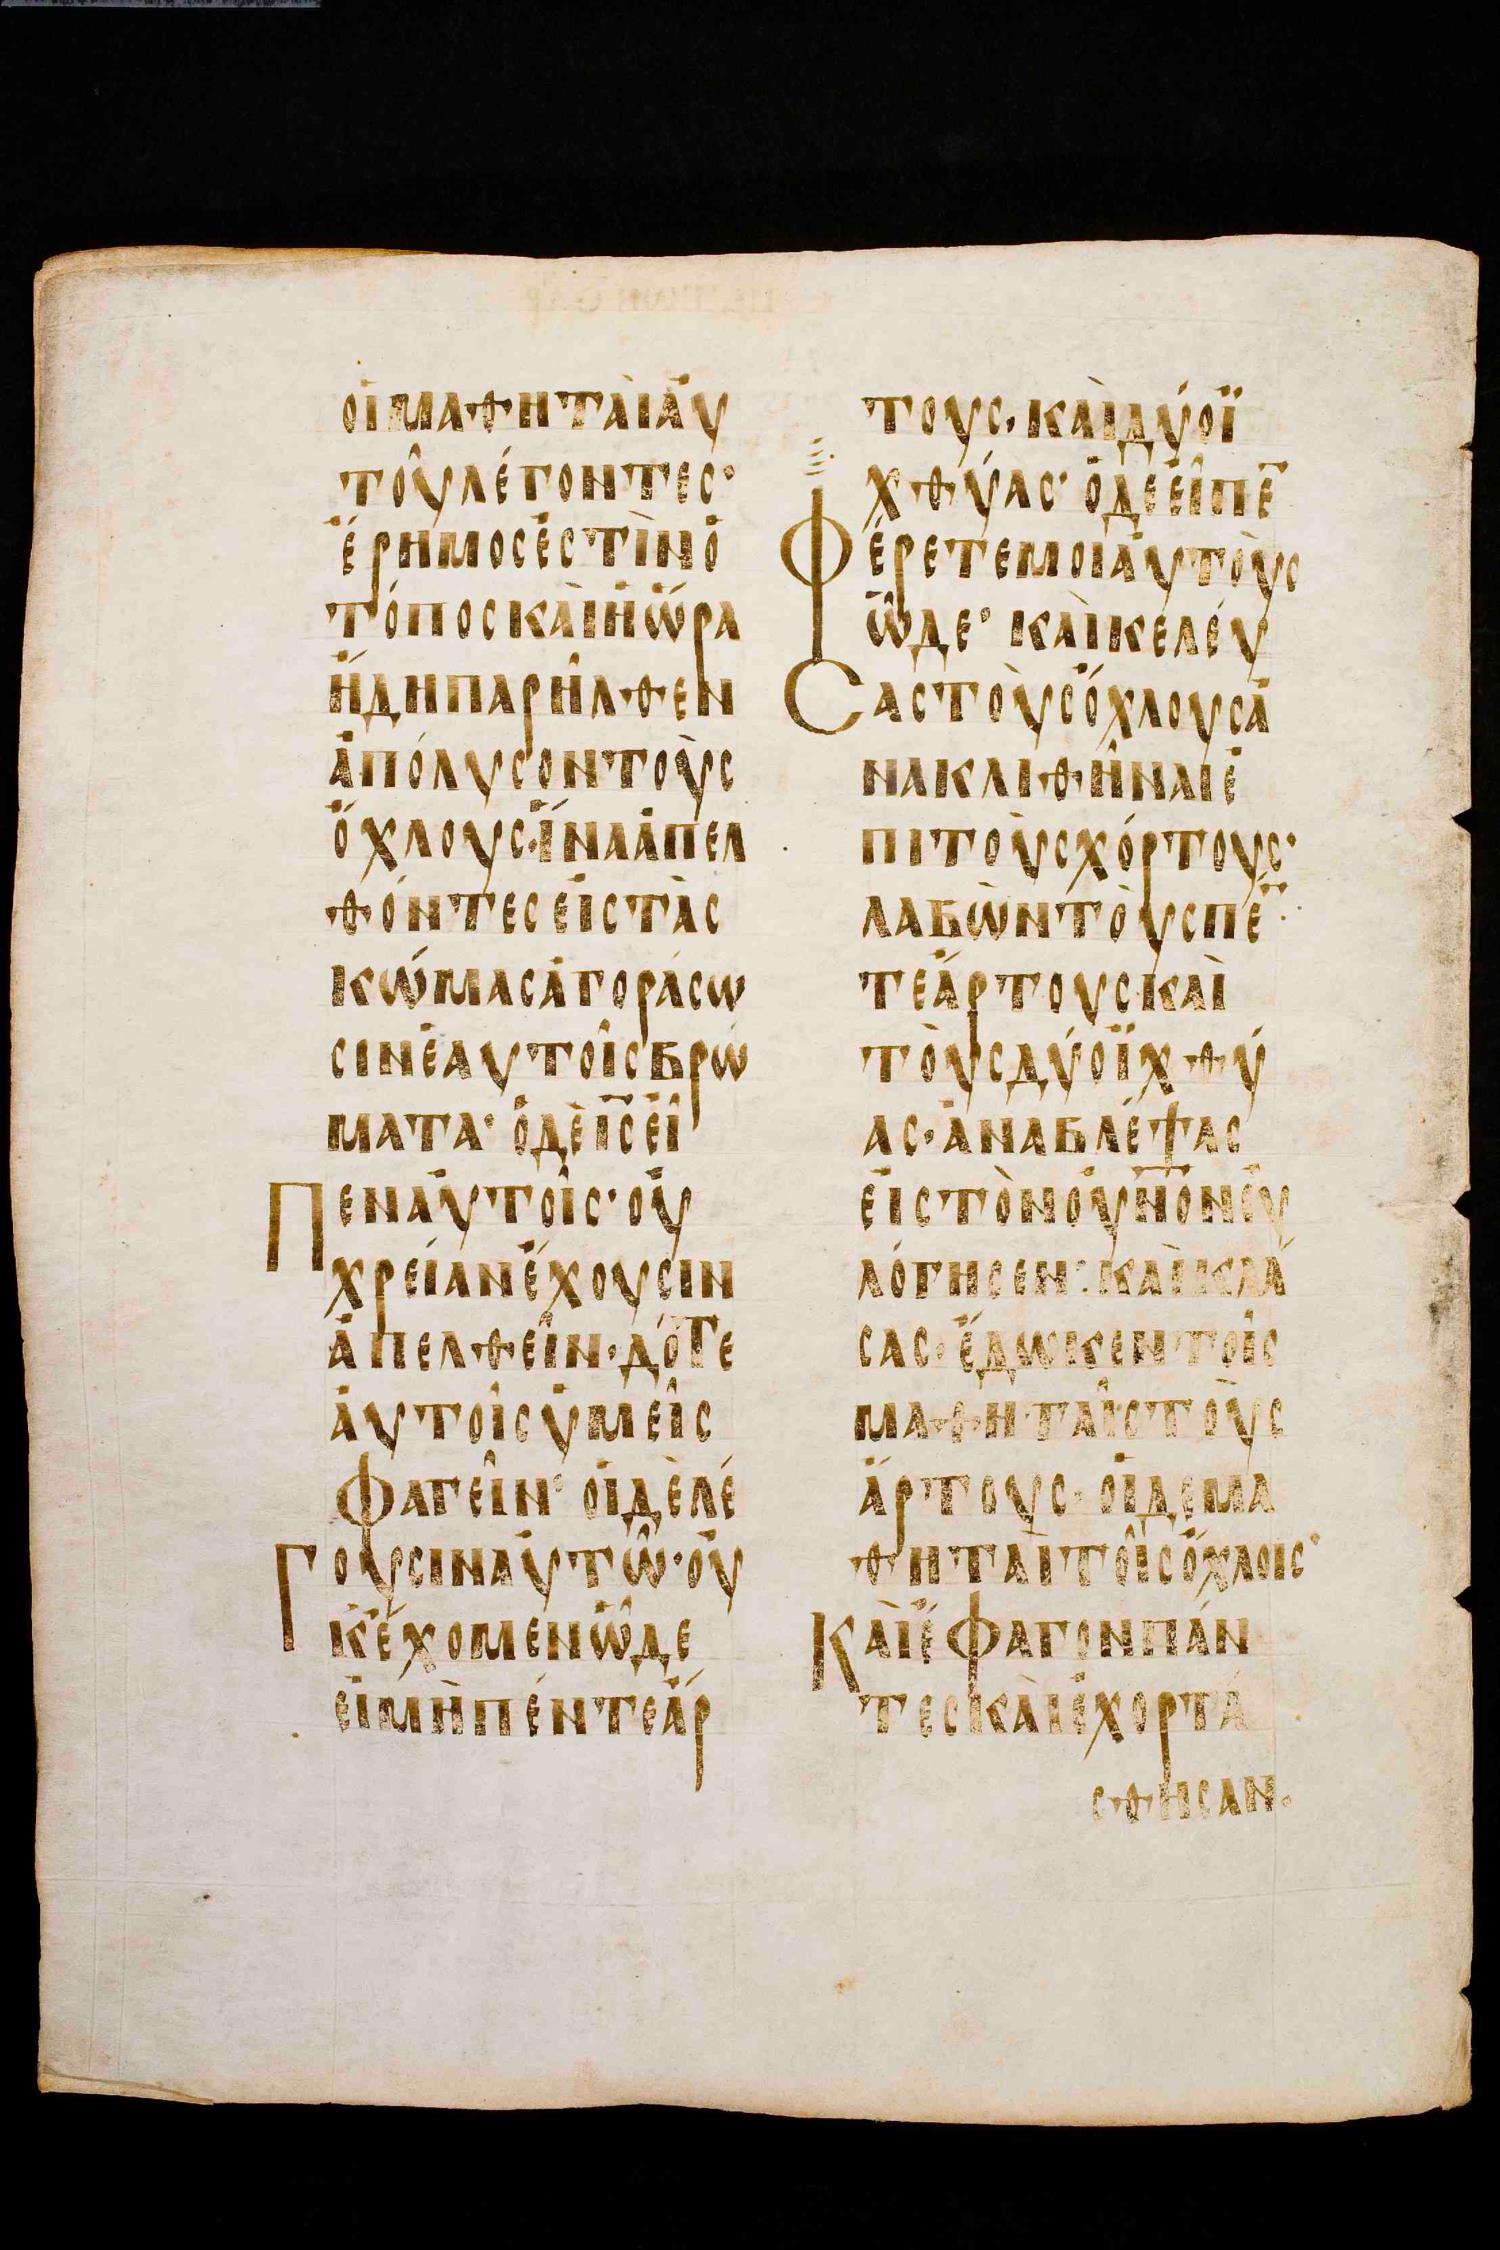 ὁι μαθηταὶ ἀυ
τοῦ λέγοντες·
ἔρημος ἐστὶν ὁ
τόπος καὶ ἡ ὥρα
ἤδη παρῆλθεν
ἀπόλυσον τοὺς
ὄχλους· ἵνα ἀπελ
θόντες ἐις τὰς
κώμας ἀγοράσω
σιν ἑαυτοῖς βρώ
ματα· ὁ δὲ ι̅ς̅ ἐῖ
πεν ἀυτοῖς· ὀυ
χρείαν ἔχουσιν
ἀπελθεῖν· δότε
ἀυτοῖς ὑμεῖς
φαγεῖν· ὁι δὲ λέ
γουσιν ἀυτῶ· ὀυ
κ ἔχομεν ὧδε
ἐι μὴ πέντε ἄρ
τους· καὶ δύο ϊ
χθύας· ὁ δε ἐῖπε̅
φέρετε μοι ἀυτοὺς
ὧδε· καὶ κελέυ
σας τοὺς ὄχλους ἀ
νακλιθῆναι ἐ
πι τοὺς χόρτους·
λαβὼν τοὺς πέ̅
τε ἄρτους καὶ
τοὺς δύο ϊχθύ
ας· ἀναβλέψας
ἐις τὸν ο̅υ̅ν̅ο̅ν ἐυ
λόγησεν· καὶ κλά
σας· ἔδωκεν τοῖς
μαθηταῖς τοὺς
ἄρτους· ὁι δε μα
θηταὶ τοῖς ὄχλοις·
καὶ ἔφαγον πάν
τες καὶ ἐχορτά
σθησαν·